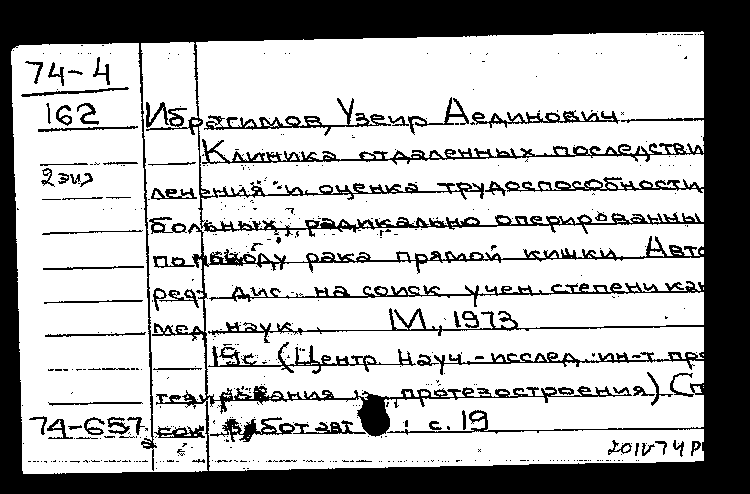 74-4
162 Ибрагимов, Узеир Аединович.
Клиника отдаленных последстви
2 экз лечения и оценка трудоспособности
больных, радикально оперированны
по поводу рака прямой кишки. Авто
реф. дис. на соиск. учен. степени кан
мед. наук. М., 1973.
19с. (Центр. науч.-исслед. ин-т про
тезирования и протезостроения) Сп
74-657 сок работ авт : с. 19